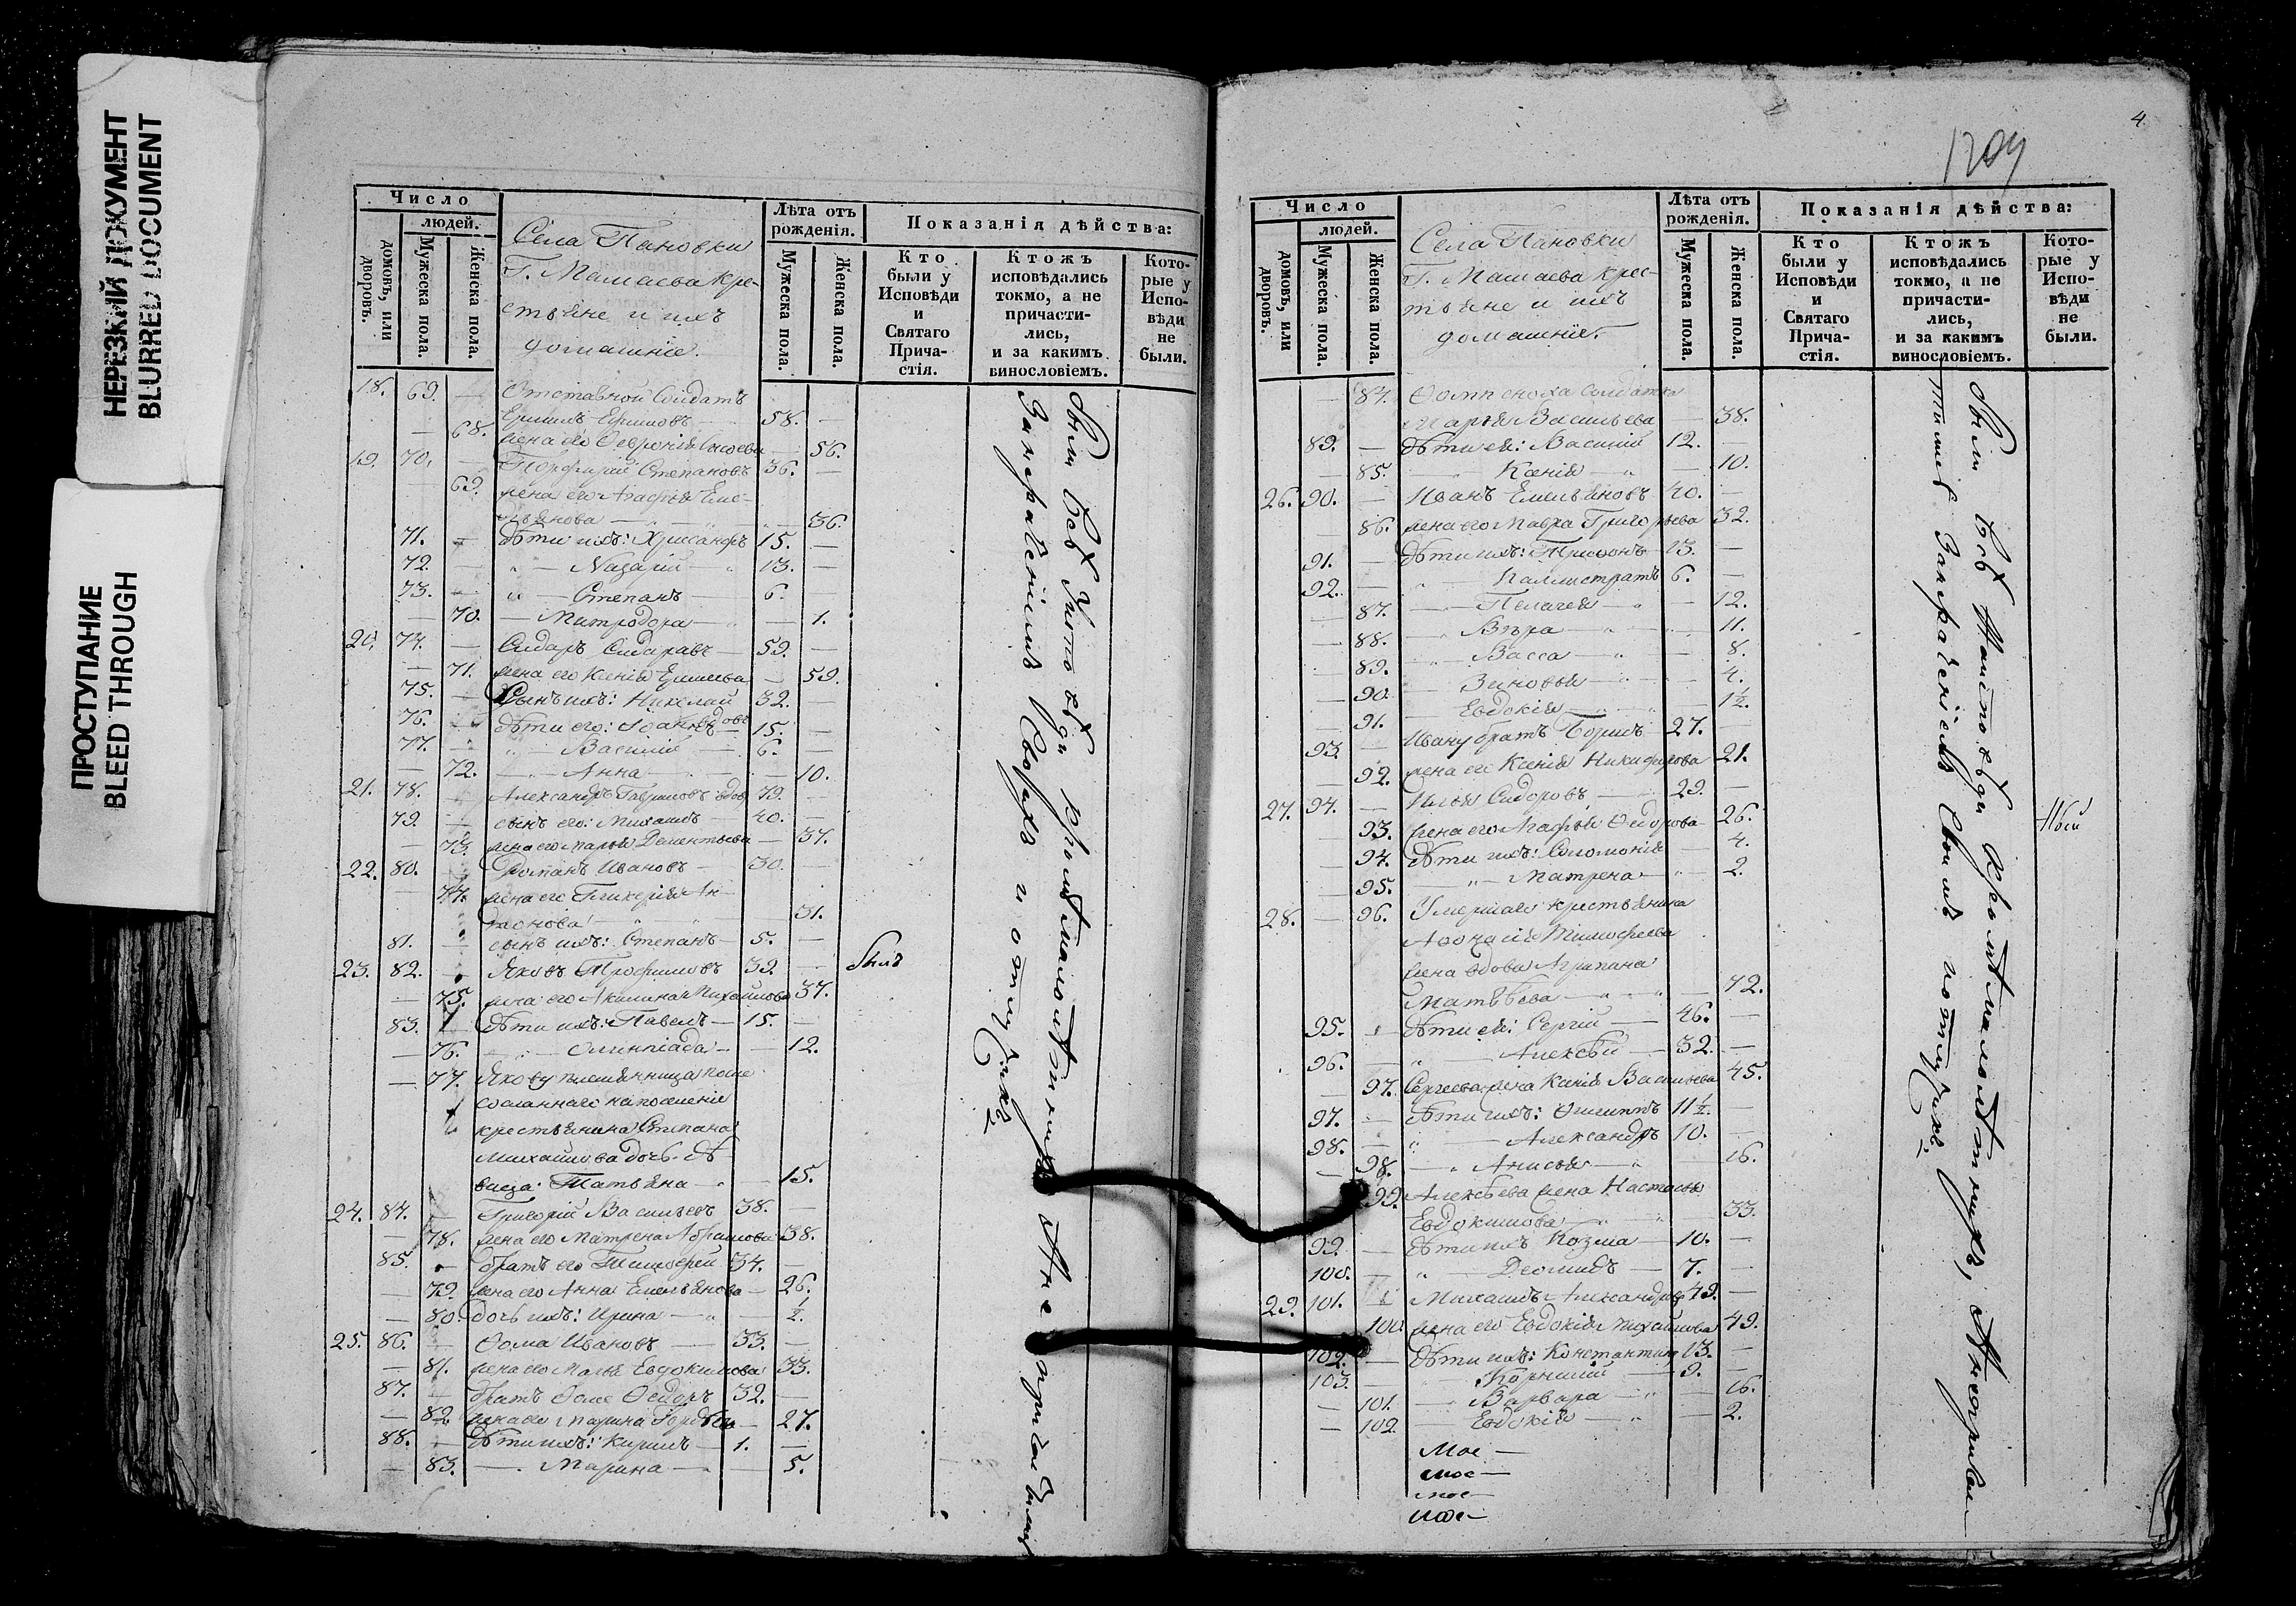 НЕРЕЗКИЙ ДОКУМЕНТ
BLURRED DOCUMENT
ПРОСТУПАНИЕ
BLEED THROUGH
Число
людей.
домовъ, или дворовъ.
Мужеска пола.
Женска пола.
Села Пановки
Г. Мамаева кре-
стьяне и ихъ
домашніе.
Лѣта отъ рожденія.
Мужеска пола.
Женска пола.
Показанія дѣйства:
Кто были у Исповѣди и Святаго Прича-стія.
Ктожъ исповѣдались токмо, а не причасти-лись, и за какимъ винословіемъ.
Кото-рые у Испо-вѣди не были.
18. 69. — Отставной Солдатъ
Ефимовъ 58. —
— 68. жена его Февронія 56.
19. 70. — Порфирій Степановъ 36. —
— 69. жена его Агафья Еме-
льянова — 36.
71. — дѣти ихъ: Хрисанфъ 15. —
72. — Назарій 13. —
73. — Степанъ 6.
— 70. — Митродора — 1.
20. 74. — Сидоръ Сидоравъ 59. —
— 71. жена его Ксенія — 59.
75. — Сынъ ихъ: Николай 32. —
76. — дѣти его: Іоаннъ 15. —
77. — Василій 6. —
— 72. — Анна — 10.
21. 78. — Александръ Гавриловъ вдов 79. —
79. — сынъ его: Михаилъ 40. —
— 73. жена его Марья Дементьева — 37.
22. 80. — Романъ Ивановъ 30.
— 74. жена его Гликерія Ан-
— 31.
81. — сынъ ихъ: Степанъ 5. —
23. 82. Яковъ Трофимовъ 39. — былъ
— 75. жена его Акилина Михайлова 37.
83. дѣти ихъ: Павелъ — 15. —
— 76. — Олимпіада — 12.
— 77. Якову племянница
сосланнаго на поселеніе
крестьянина Степана
Михайлова дочь дѣ-
вица: Татьяна — 15.
24. 84. — Григорій Васильевъ 38. —
— 78. жена его Матрена Абрамова 38.
85. братъ его Тимофей 34. —
— 79. жена его Анна Емельянова — 26.
— 80. дочь ихъ: Ирина — ½.
25. 86. — Ѳома Ивановъ 33. —
— 81. жена его Евдокимова 33.
87. — братъ Ѳоме Ѳедоръ 32. —
— 82. жена его Марина — 27.
88. — дѣти ихъ: Кирилъ — 1. —
— 83. — Марина — 5.
Были всѣ у исповѣди кромѣ малолѣтнихъ А не причастились
За нерачениемъ
и отлучкахъ
4
1209
Число
людей.
домовъ, или дворовъ.
Мужеска пола.
Женска пола.
Села Пановки
Г. Мамаева крес-
тьяне и ихъ
домашніе.
Лѣта отъ рожденія.
Мужеска пола.
Женска пола.
Показанія дѣйства:
Кто были у Исповѣди и Святаго Прича-стія.
Ктожъ исповѣдались токмо, а не причасти-лись, и за какимъ винословіемъ.
Кото-рые у Испо-вѣди не были.
— 84. сноха солдатка
Марья Васильева — 38.
89. — дѣти ея: Василій 12. —
— 85. Ксенія — 10.
26. 90. — Иванъ Емельяновъ 40. —
— 86. жена его Мавра Григорьева 32.
91. — дѣти ихъ: Трифонъ 13. —
92. — Каллистратъ 6. —
— 87. — Пелагея — 12.
— 88. — Вѣра — 11.
— 89. — Васса — 8.
— 90. — Зиновья — 4.
— 91. Евдокія — 1½.
93. — Ивану братъ Борисъ 27. —
— 92. жена его Ксенія Никифорова 21.
27. 94. — Илья Сидоровъ 29. —
— 93. жена его Марфа Ѳедорова 26.
— 94. дѣти ихъ: Соломонія — 4.
— 95. — Матрена — 2.
28. — 96. Умершаго крестьянина
Тимофеева
жена вдова Агрипина
Матвѣева — 72.
95. дѣти ея: Сергій 46. —
96. — Алексѣй 32. —
— 97. Сергеева жена Ксенія Васильева 45.
97. — дѣти ихъ: Филиппъ 11½. —
98. — Александръ 10. —
— 98. — Анисья — 16.
— 99. Алексѣева жена Настасья
Евдокимова — 33.
99. — дѣти ихъ Козма — 10. —
100. — Деомидъ — 7. —
29. 101. Михаилъ Александровъ 49. —
100. жена его Евдокія Михайлова 49.
102. — дѣти ихъ: Константинъ 13. —
103. Корнилій — 9. —
— 101. — Варвара — 16.
— 102. Евдокія — 2.
Были всѣ у исповѣди кромѣ малолѣтнихъ, А не прича-
За нерачениемъ Своимъ и отлучке